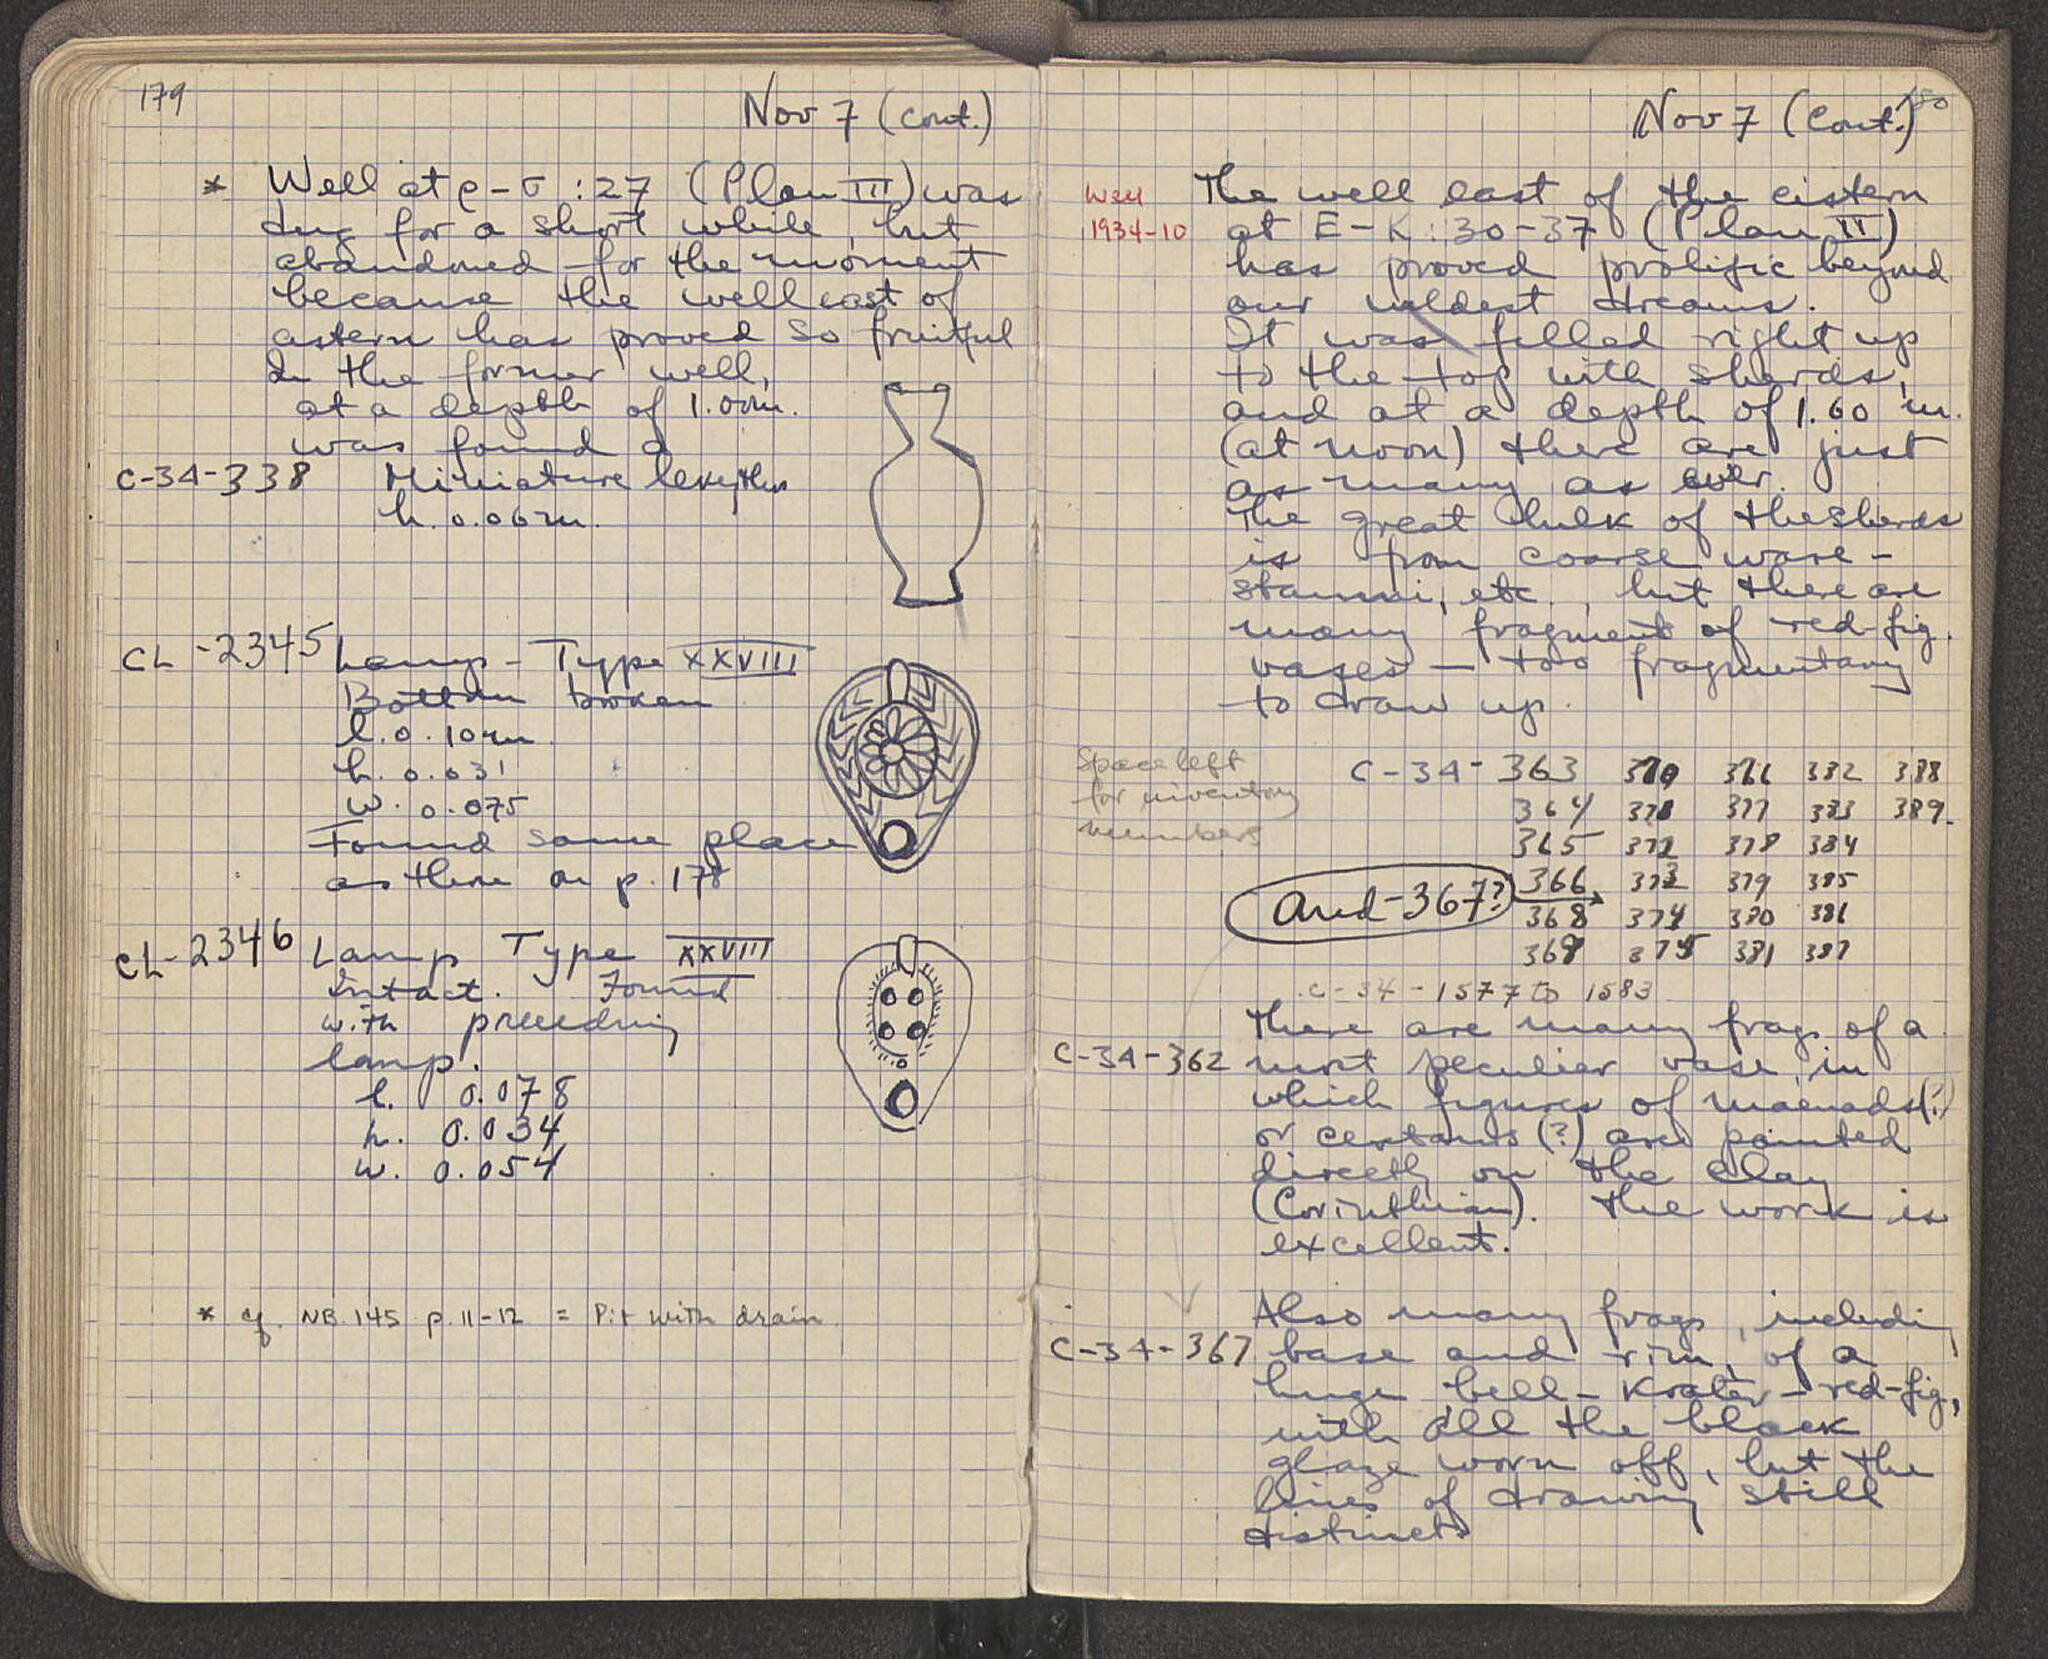 179
Nov 7 (cont.)
* Well at ρ-σ :27 (Plan III) was
dug for a short while, but
abandoned for the moment
because the well east of
cistern has proved so fruitful
In the former well,
at a depth of 1.00m.
was found a
C-34-338 Miniature lekythos
h. 0.06m.
CL-2345 Lamp - Type XXVIII
Bottom broken
l. 0.10m
h. 0.031
w. 0.075
Found same place
as those on p. 178
CL-2346 Lamp Type XXVIII
Intact. Found
with preceding
lamp.
l. 0.078
h. 0.034
w. 0.054
* cf. NB. 145 p. 11-12 = Pit with drain
180
Nov 7 (Cont.)
Well
1934-10
The well east of the cistern
at E-K:30-37 (Plan II)
has proved prolific beyond
our wildest dreams.
It was filled right up
to the top with sherds,
and at a depth of 1.60 m.
(at noon) there are just
as many as ever.
The great bulk of the sherds
is from coarse ware -
stamni, etc., but there are
many fragments of red-fig.
vases - too fragmentary
to draw up.
Space left
for inventory
numbers
C-34-363 370 376 382 388
364 371 377 383 389.
365 372 378 384
366 373 379 385
and-367?
368 374 380 386
369 375 381 387
C-34-1577 to 1583
There are many frags of a
C-34-362 most peculiar vase in
which figures of maenads(?)
or centaurs (?) are painted
directly on the clay
(Corinthian). The work is
excellent.
Also many frags, including
C-34-367 base and rim, of a
huge bell-krater - red-fig,
with all the black
glaze worn off, but the
lines of drawing still
distinct